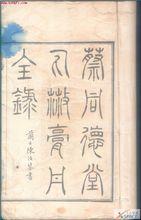 蔡同德堂
丸散膏丹
全錄